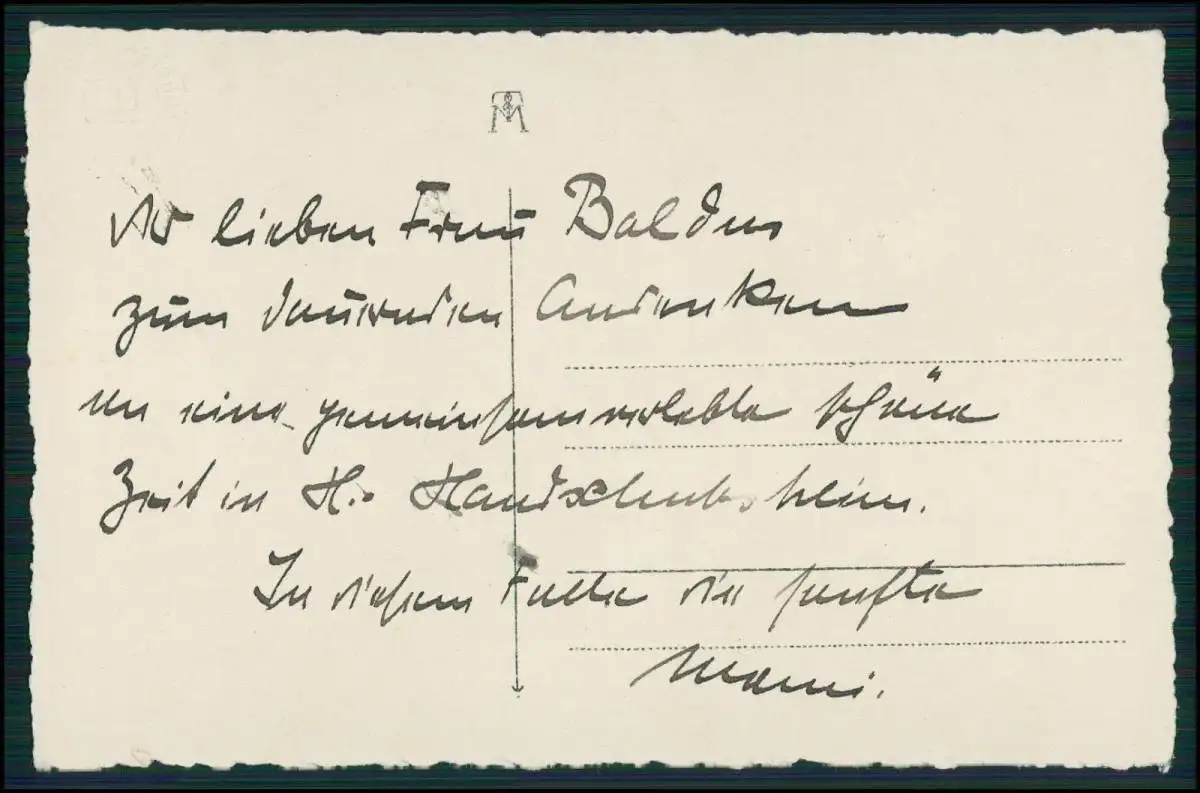 Der lieben Frau Baldus
zum dauernden Andenken
an eine gemeinsam verlebte schöne
Zeit in H. Handschuhsheim.
In diesem Falle die sanfte
Mami.